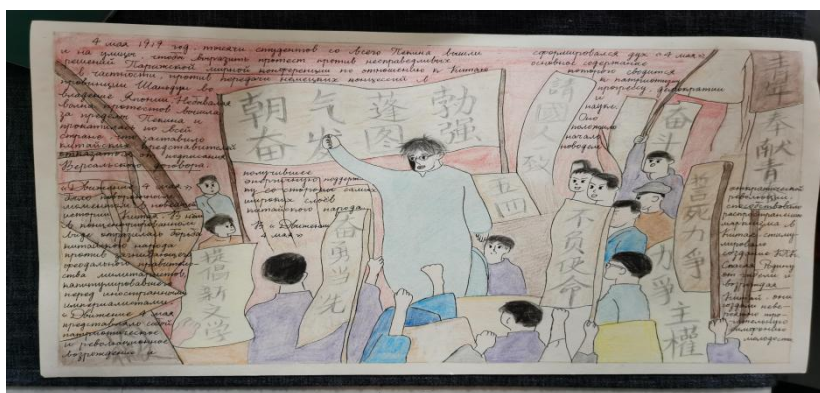 4 мая 1919 год. тысячи студентов со всего Пекина вышли
и на улицы, чтобы выразить протест против несправедливых
решений Парижской мирной конференции по отношению к Китаю
в частности, против передачи немецких концессий в
провинции Шаньдун во
владение Японии
волна протестов вышла
за пределы Пекина и
прокатилась по всей
стране, что заставило
китайских представителей
отказаться от подписания
Версальского договора.
«Движение 4 мая»
истории Китая. В нём
в концентрированном
виде отразилась борьба
китайского народа
против
феодального
ства милитаристов,
капитулировавшего
перед иностранными
империалистами
«Движение 4 мая
представляло собой
патриотическое
и революционное
возрождение и
получившее
энергичную поддерж
ку со стороны самых
широких слоёв
китайского народа
В «Движении
4 мая»
сформировался дух «4 мая»
основное содержание
которого сводится
к патриотизму
прогрессу, демократии
науке.
Оно
положило
начало
поводом
революции
способствовало
распространению
марксизма в
Китае, стиму
лировало
создание КПК.
Китай. они
создали
симфонию
молодости
朝气蓬勃
奋发图强
請國人致
五四
奋斗
青年奉献青
誓死力爭
力爭主權
不负使命
奋勇当先
提倡新文学